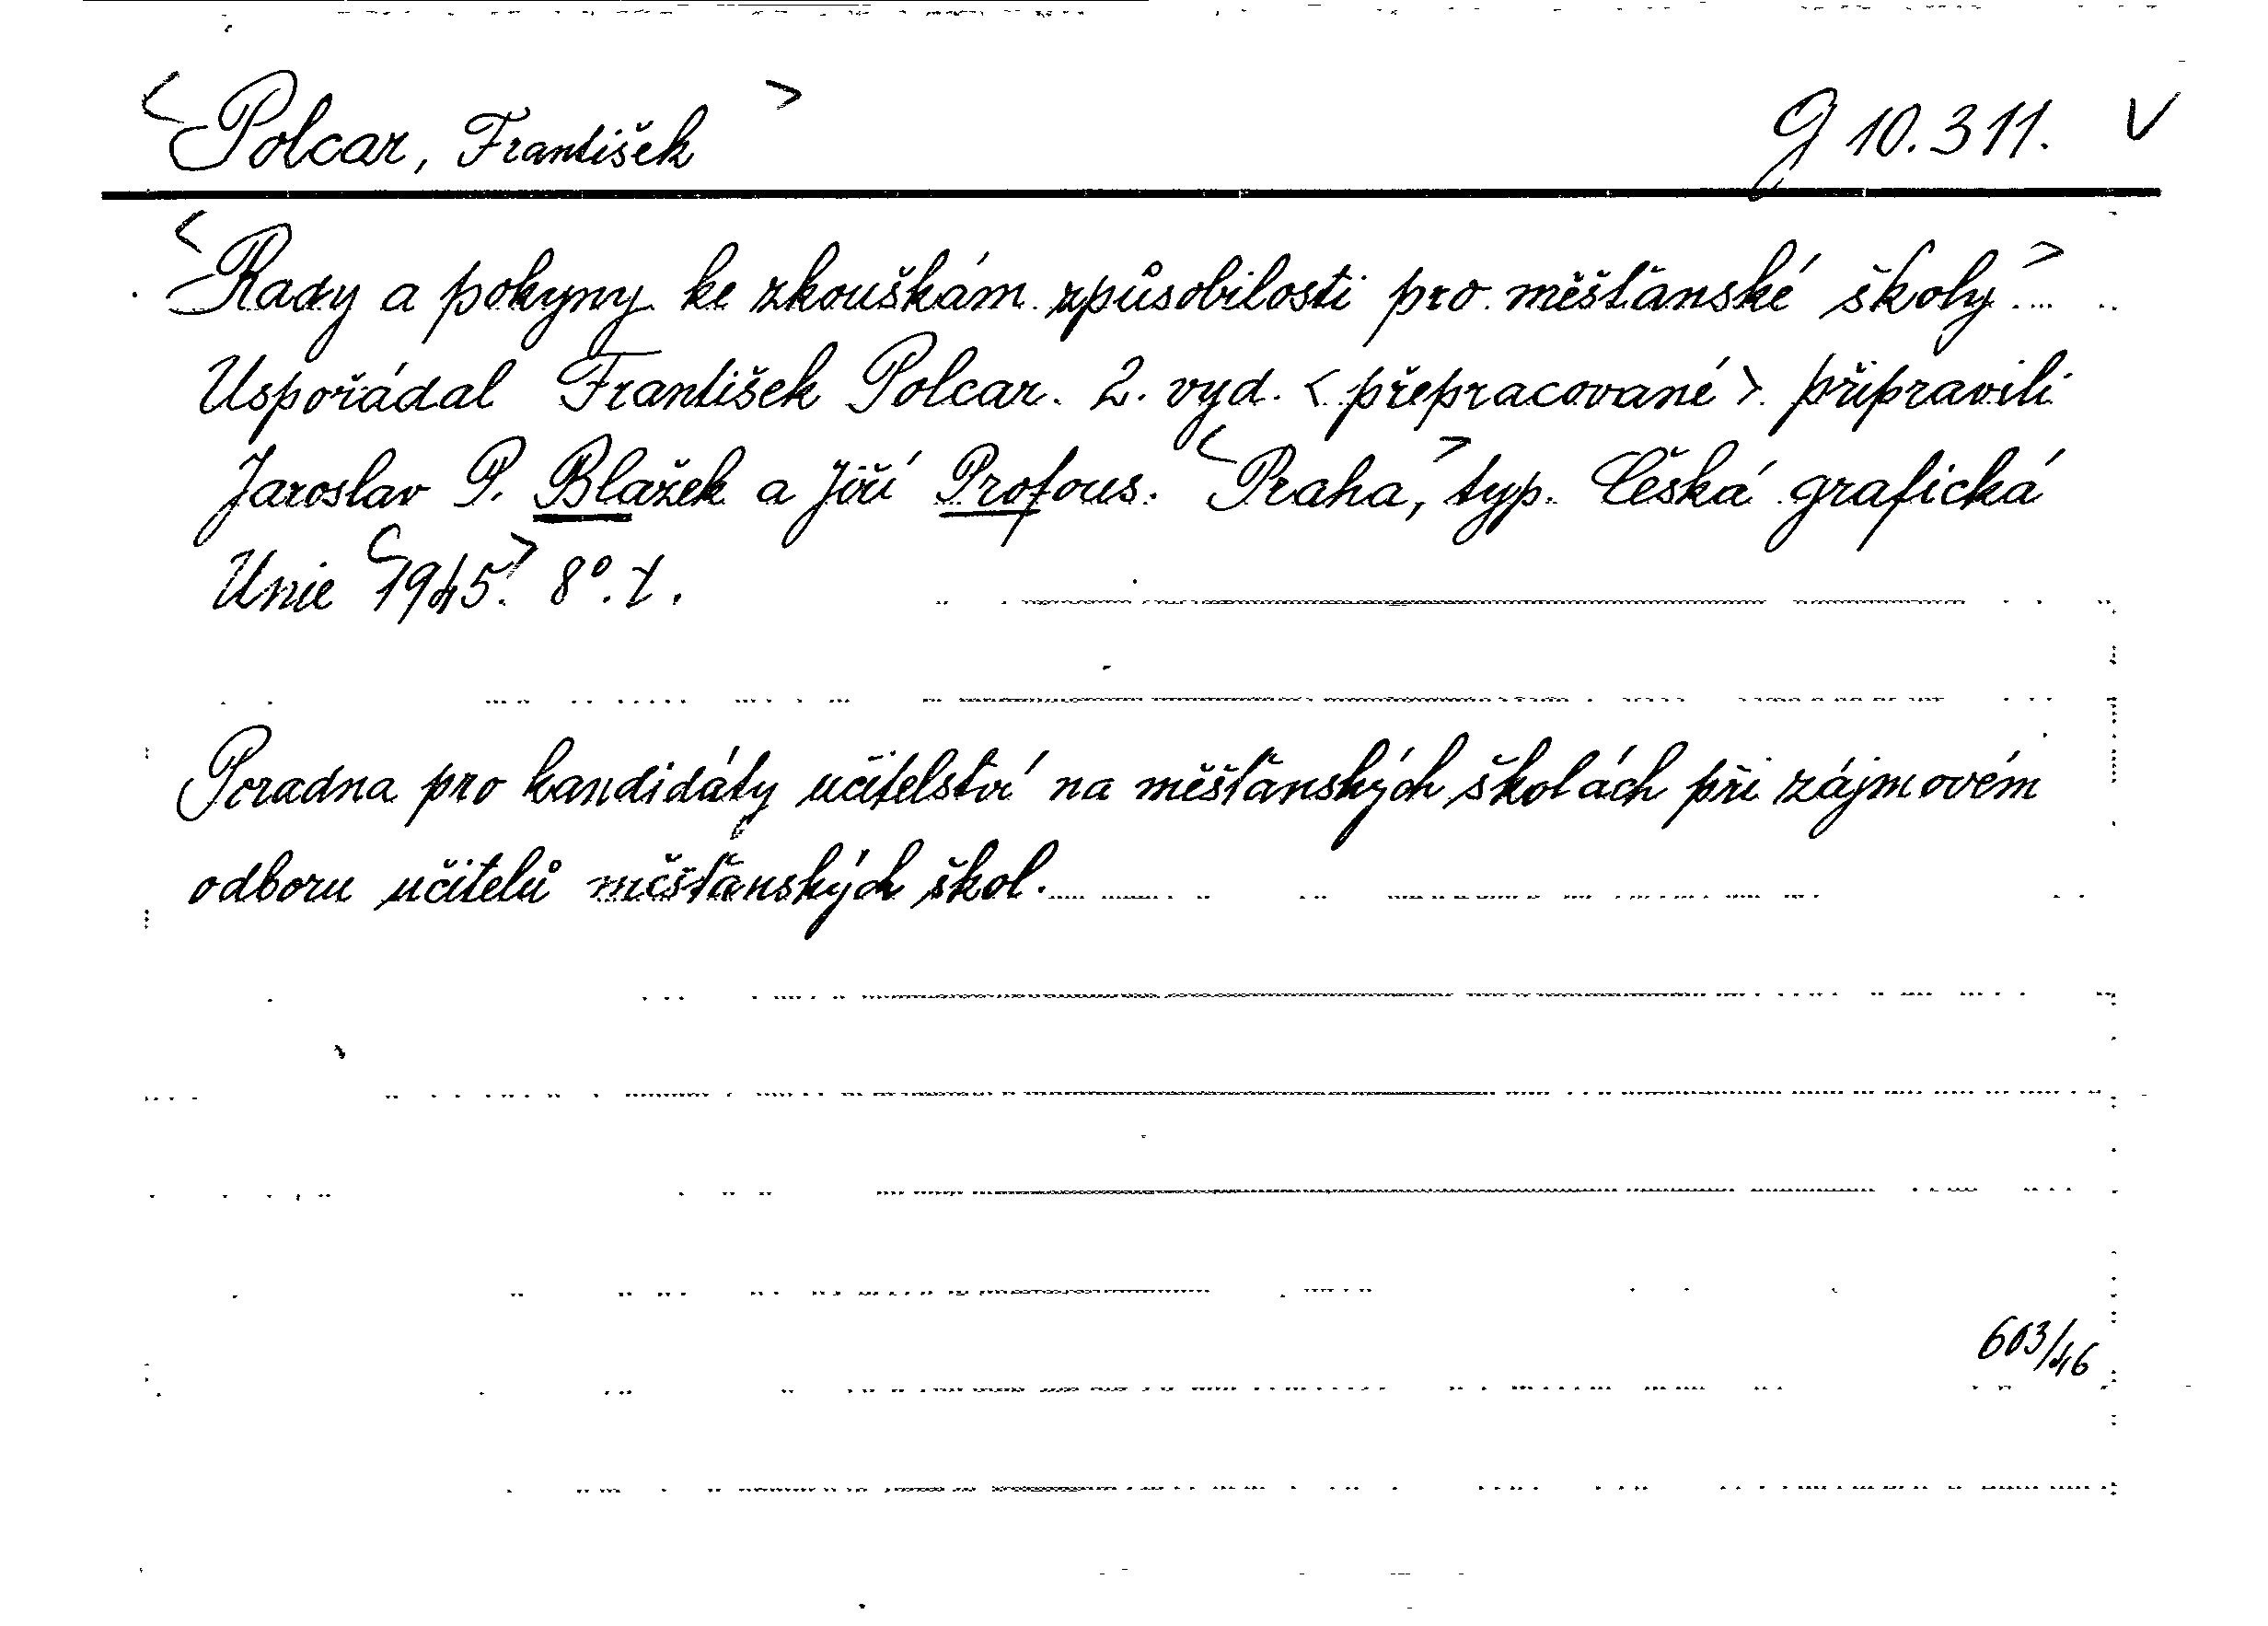 <Polcar, František> G 10.311. V
<Rady a pokyny ke zkouškám způsobilosti pro měšťanské školy.>
Uspořádal František Polcar. 2. vyd. <přepracované> připravili
Jaroslav P. Blažek a Jiří Profous. <Praha,> typ. Česká grafická
Unie <1945>. 8°.
Poradna pro kandidáty učitelství na měšťanských školách při zájmovém
odboru učitelů měšťanských škol.
603/46